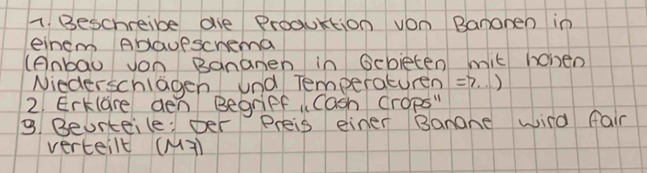 1. Beschreibe die Produktion von Bananen in
einem Ablaufschema
(Anbau von Bananen in Gebieten mit hohen
Niederschlägen und Temperaturen =>...)
2. Erkläre den Begriff „Cash Crops"
3. Beurteile: Der Preis einer Banane wird fair
verteilt (M7)